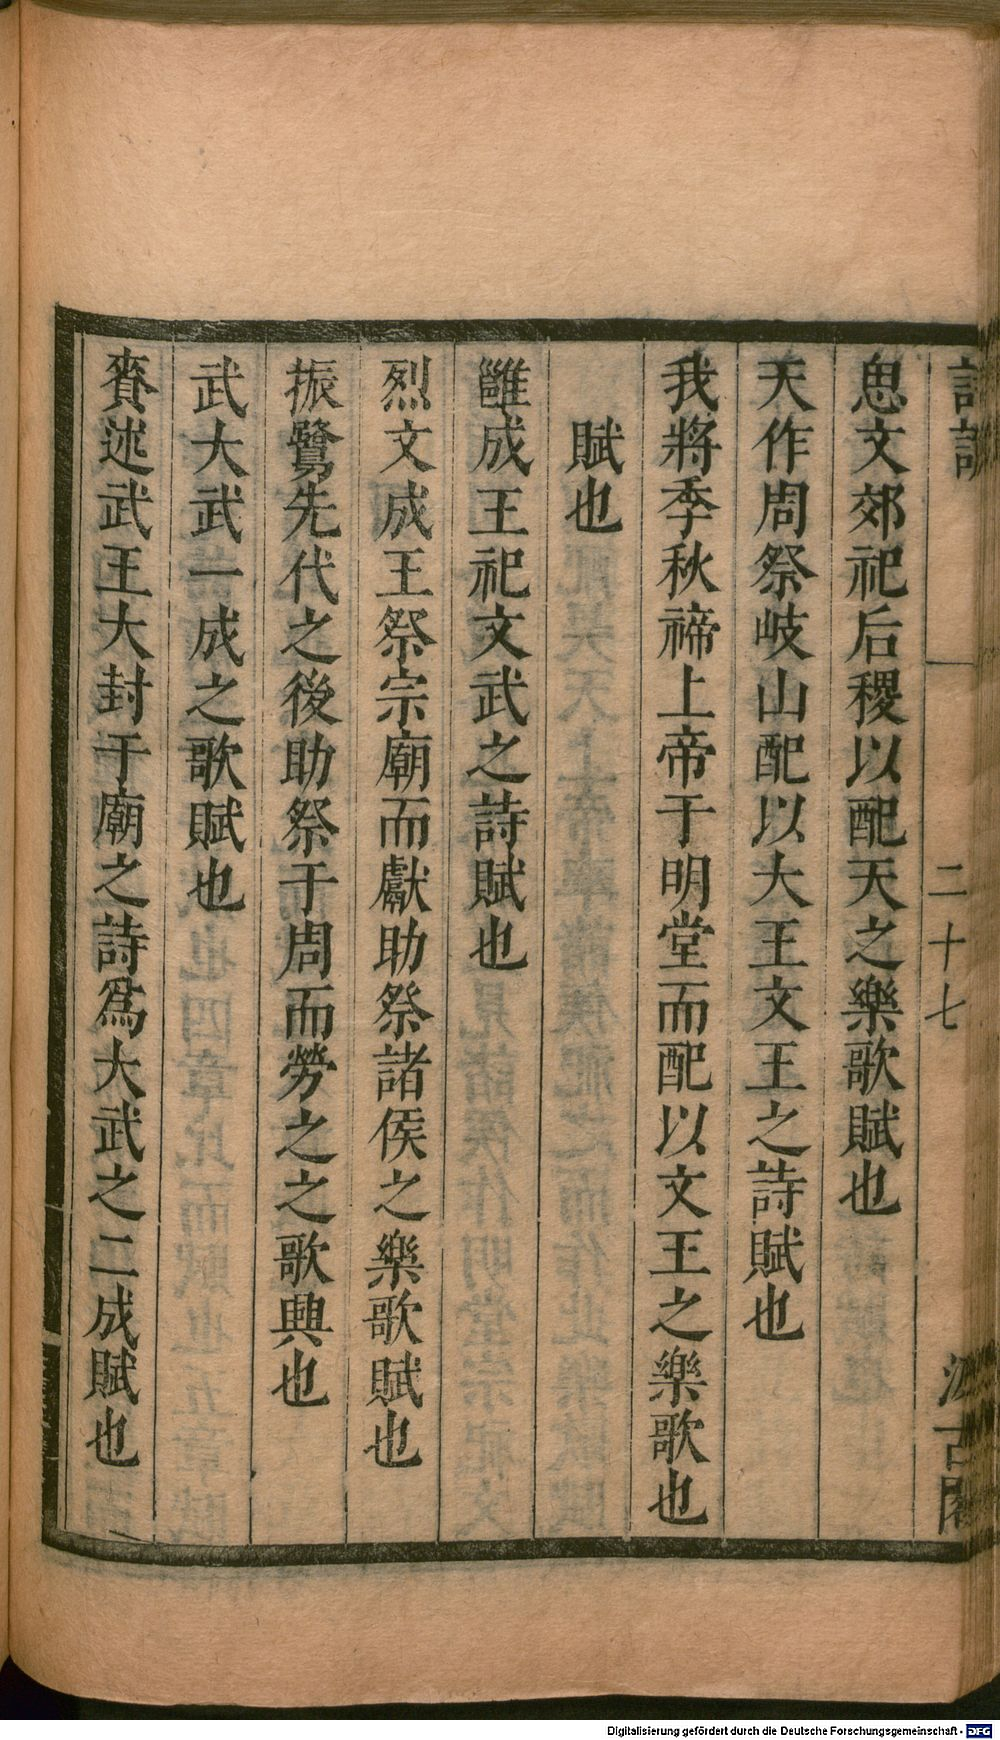 詩說
二十七
汲古閣
思文郊祀后稷以配天之樂歌賦也
天作周祭岐山配以大王文王之詩賦也
我將季秋禘上帝于明堂而配以文王之樂歌也
賦也
雝成王祀文武之詩賦也
烈文成王祭宗廟而獻助祭諸侯之樂歌賦也
振鷺先代之後助祭于周而勞之之歌興也
武大武一成之歌賦也
賚述武王大封于廟之詩爲大武之二成賦也
Digitalisierung gefördert durch die Deutsche Forschungsgemeinschaft - DFG